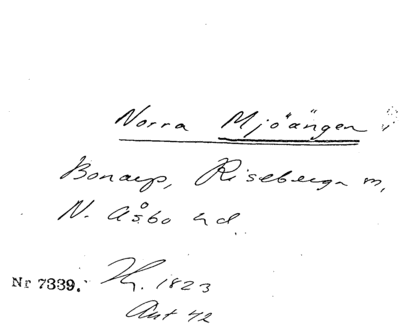 Norra Mjöängen
Bonarp, Riseberga m,
N. Åsbo hd.
Nr 7339. Th. 1823
Ant 42